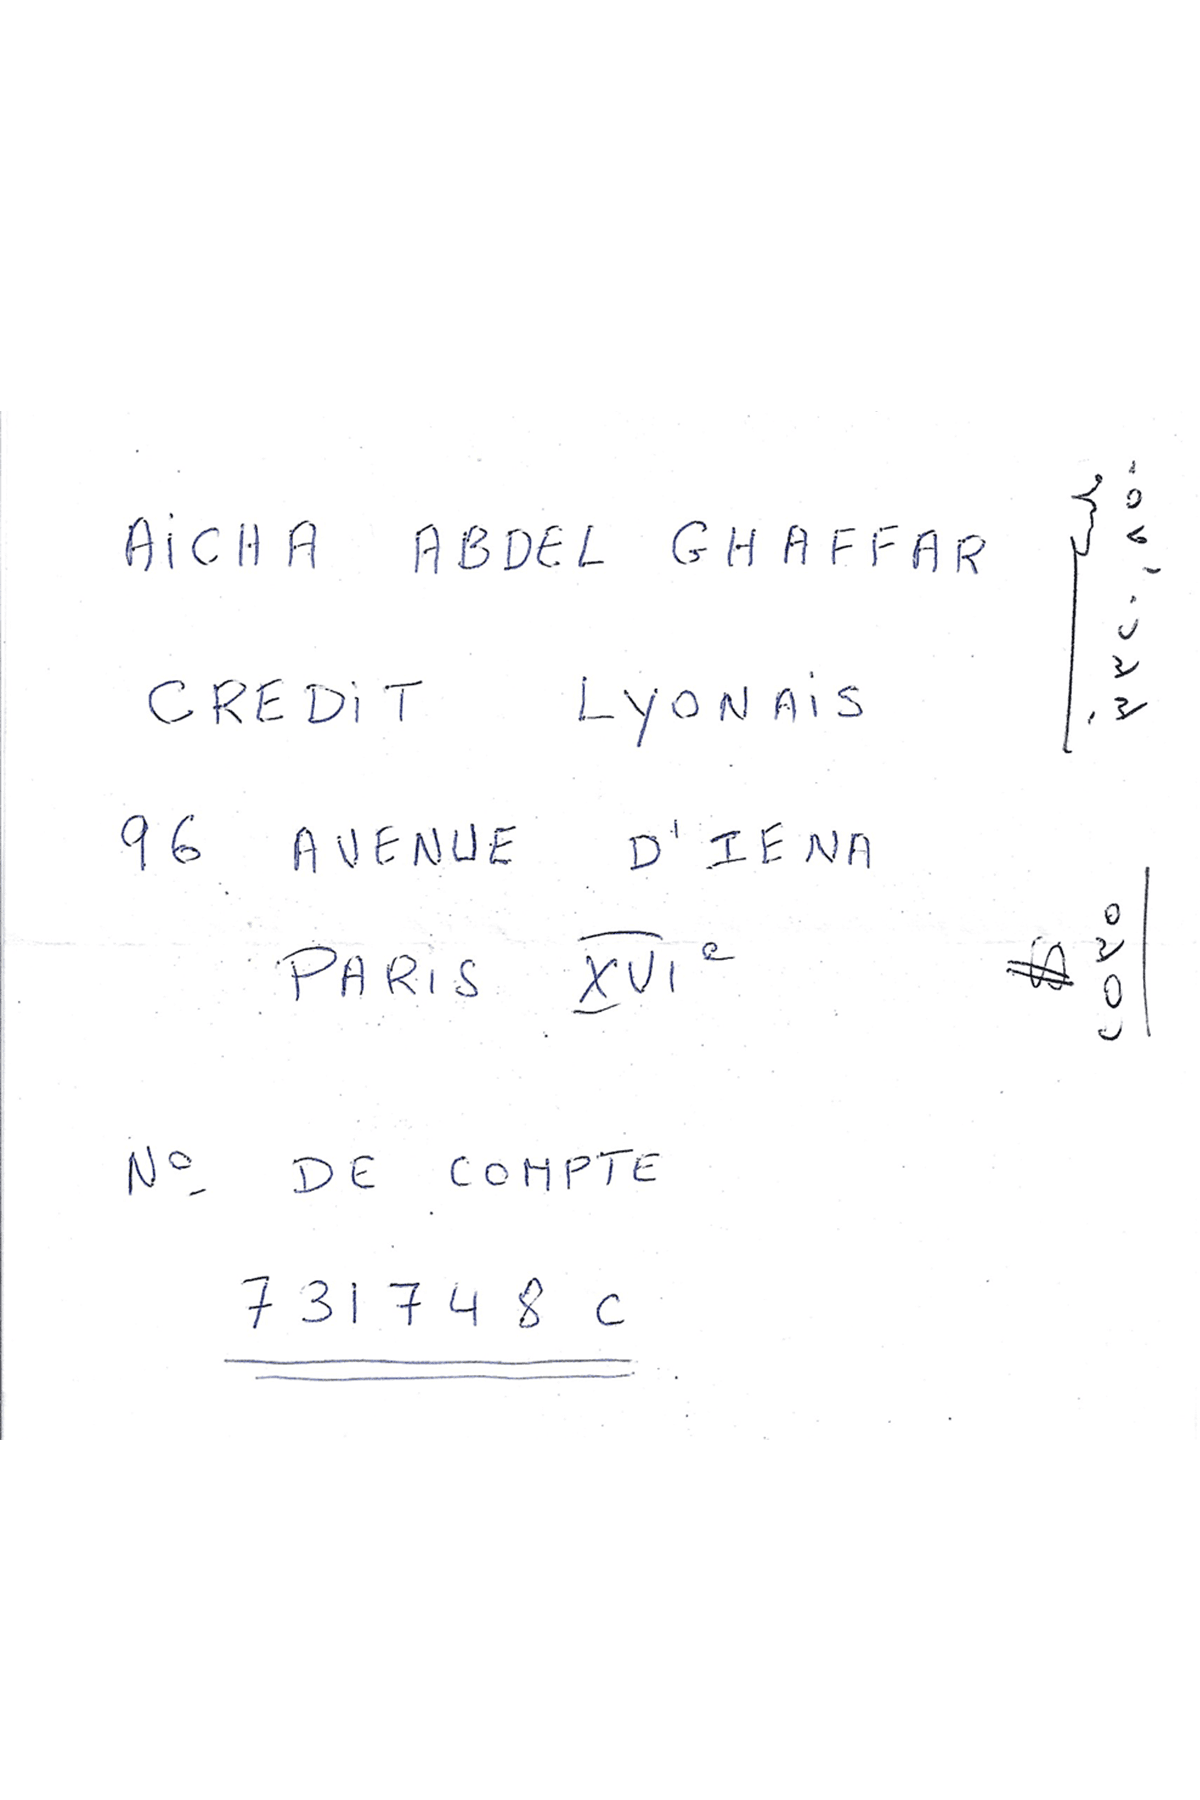 AiCHA ABDEL GHAFFAR
CREDiT LyONAiS
96 AVENUE D'IENA
PARiS XVIe
No DE COMPTE
731748 C